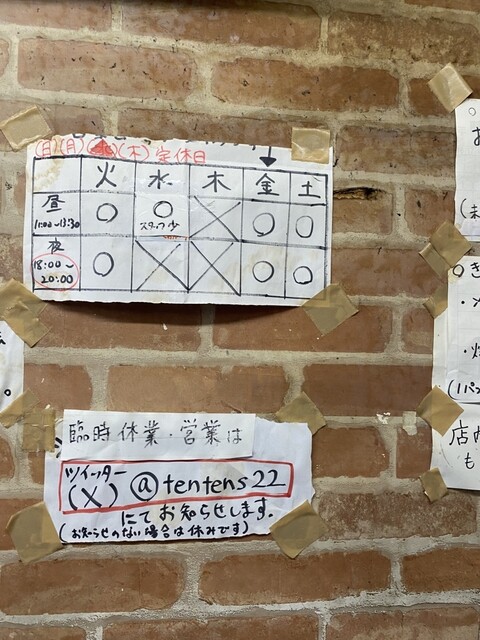 (日)(月)(木)定休日
火 水 木 金 土
昼 11:00〜13:30 ○ ○ スタッフ少 × ○ ○
夜 18:00〜20:00 ○ × × ○ ○
臨時休業・営業は
ツイッター
(X) @tentens22
にてお知らせします。
(お知らせのない場合は休みです)
(1パ
店内
も